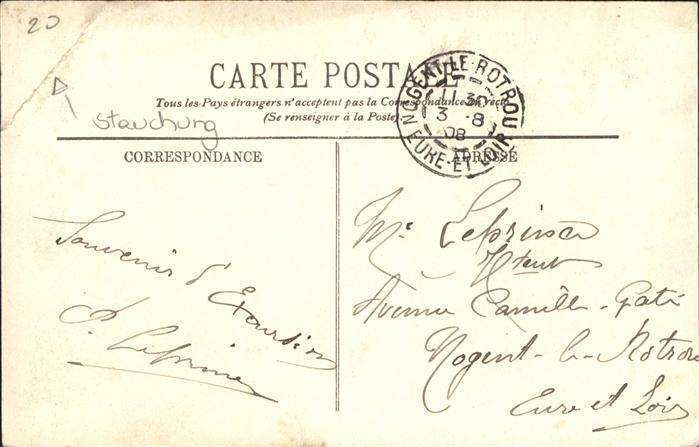 20
CARTE POSTALE
Tous les Pays étrangers n'acceptent pas la Correspondance au recto
(Se renseigner à la Poste)
NOGENT-LE-ROTROU
11 30
3 - 8
08
EURE-ET-LOIR
Stauchung
CORRESPONDANCE
Souvenir d'Excursion
Leprince
ADRESSE
Mr Leprince
Avenue Camille-
Nogent-le-Rotrou
Eure et Loir